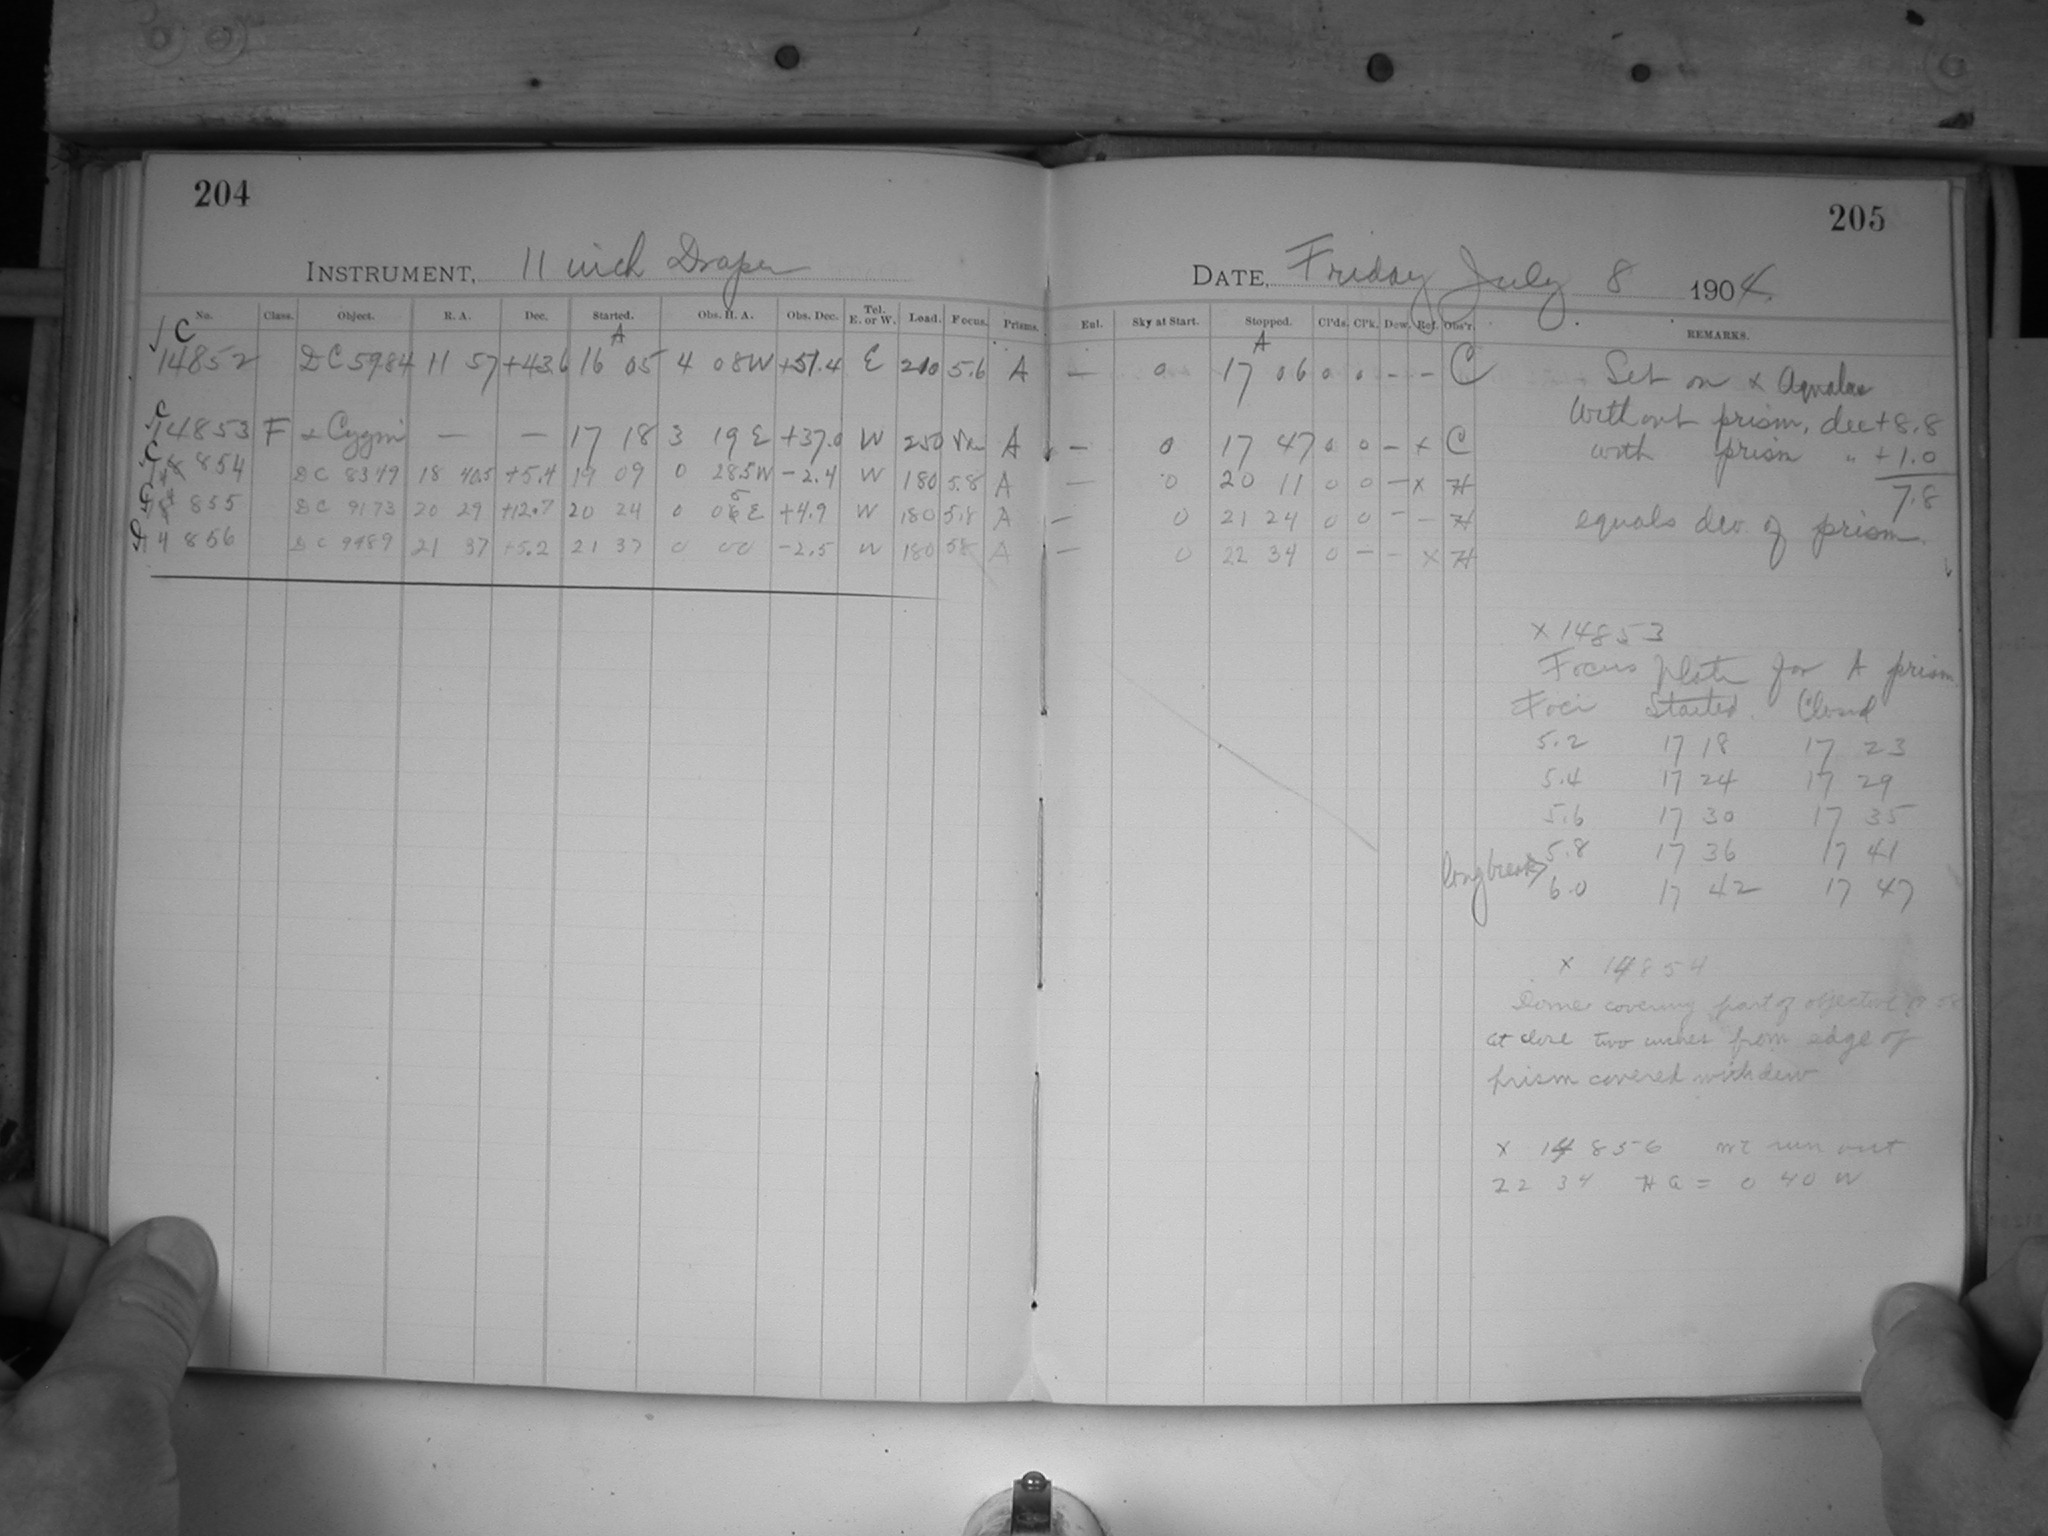 204
INSTRUMENT, 11 inch Draper
No. Class. Object. R. A. Dec. Started. Obs. H. A. Obs. Dec. Tel. E. or W. Load. Focus. Prisms.
C A
14852 DC 5984 11 57 +43.6 16 05 4 08 W +51.4 E 210 5.6 A
C
14853 F α Cygni — — 17 18 3 19 E +37.0 W 250 A
C
14 854 DC 8349 18 40.5 +5.4 19 09 0 28.5 W -2.4 W 180 5.8 A
C
14 855 DC 9173 20 29 +12.7 20 24 0 05 E +4.9 W 180 5.8 A
D
14 856 DC 9489 21 37 +5.2 21 37 0 00 -2.5 W 180 5.8 A
205
DATE, Friday July 8 1904.
Enl. Sky at Start. Stopped. Cl'ds. Cl'k. Dew. Ref. Obs'r. REMARKS.
A
— 0 17 06 0 0 - - C Set on α Aquilae
Without prism, dec +8.8
— 0 17 47 0 0 - x C with prism " +1.0
— 0 20 11 0 0 - x H 7.8
— 0 21 24 0 0 - - H equals dev. of prism.
— 0 22 34 0 - - x H
x 14853
Focus plate for A prism
Foci Started Closed
5.2 17 18 17 23
5.4 17 24 17 29
5.6 17 30 17 35
5.8 17 36 17 41
long break>
6.0 17 42 17 47
x 14854
Dome covering part of objective 19 58
at close two inches from edge of
prism covered with dew
x 14 856 run out
22 34 H a = 0 40 W